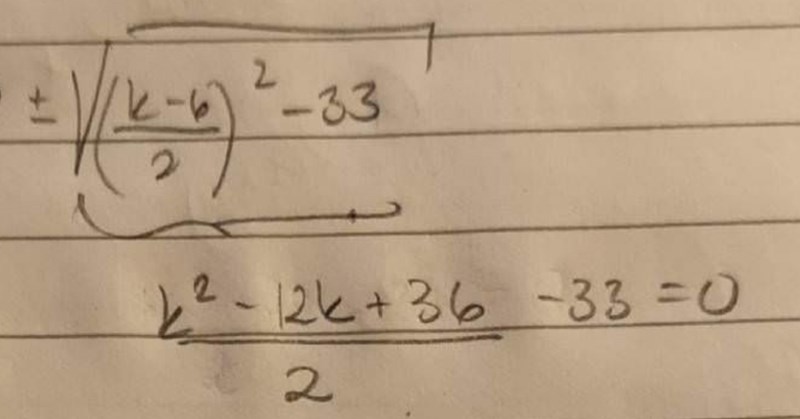 ± √((k-6)/2)² - 33
(k² - 12k + 36)/2 - 33 = 0